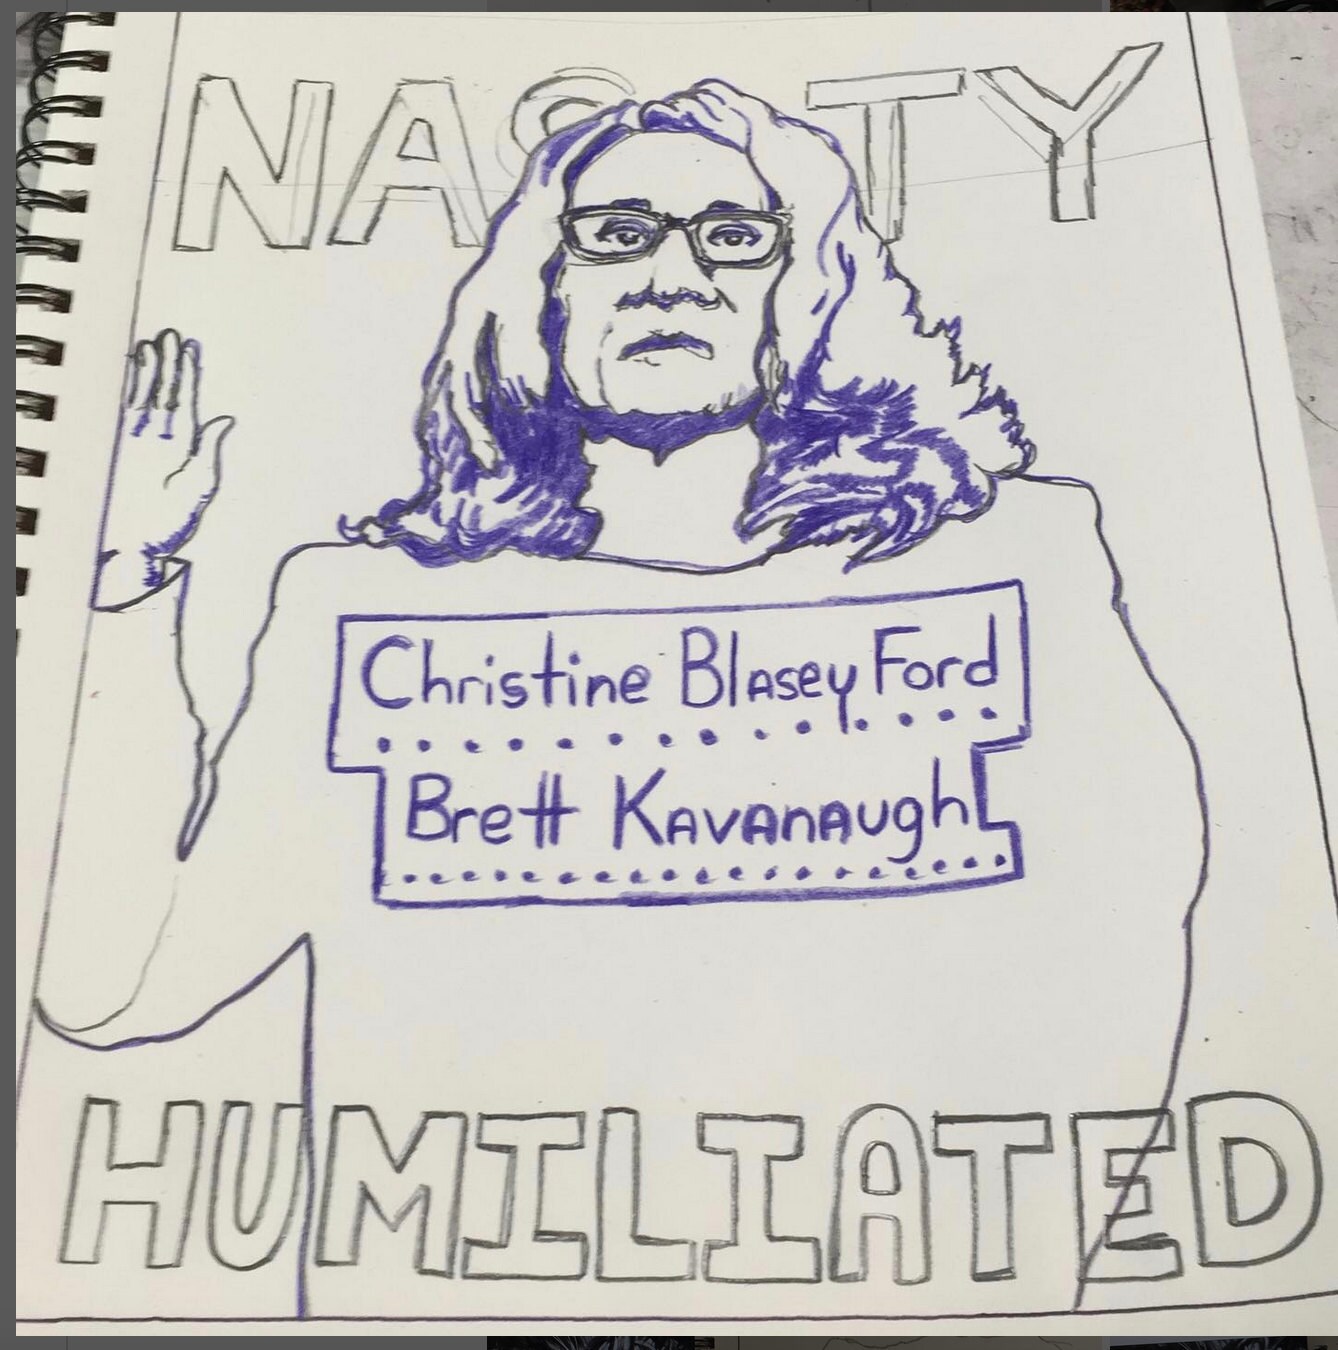 NASTY
Christine Blasey Ford
Brett Kavanaugh
HUMILIATED